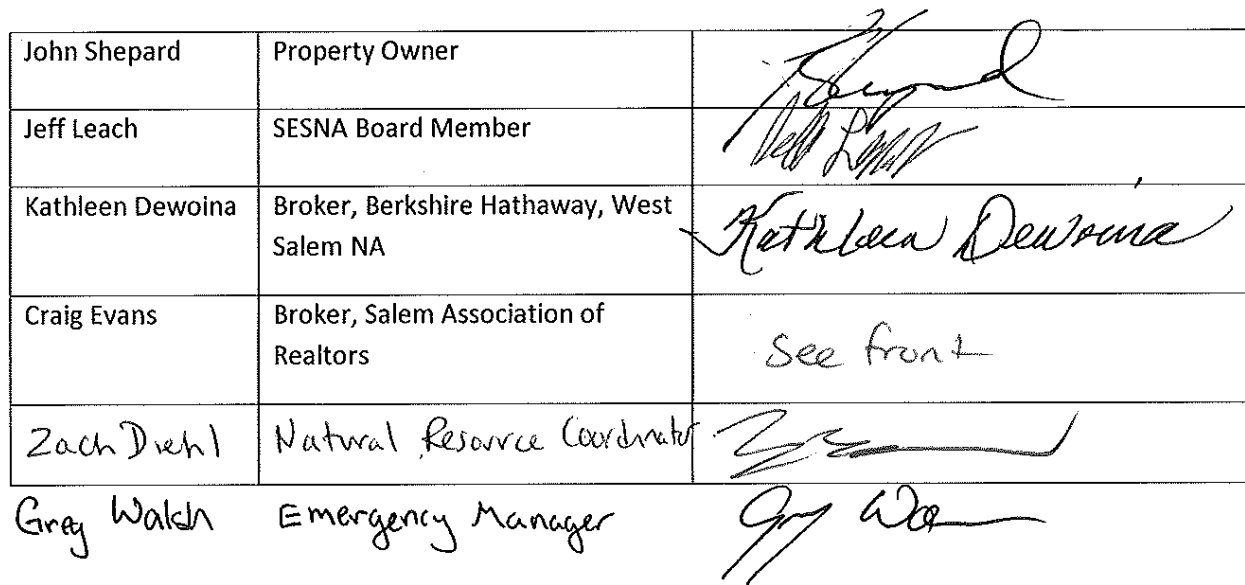 John Shepard Property Owner
Jeff Leach SESNA Board Member Jeff
Kathleen Dewoina Broker, Berkshire Hathaway, West Salem NA Kathleen Dewoina
Craig Evans Broker, Salem Association of Realtors See front
Zach Diehl Natural Resource Coordinator
Greg Walsh Emergency Manager